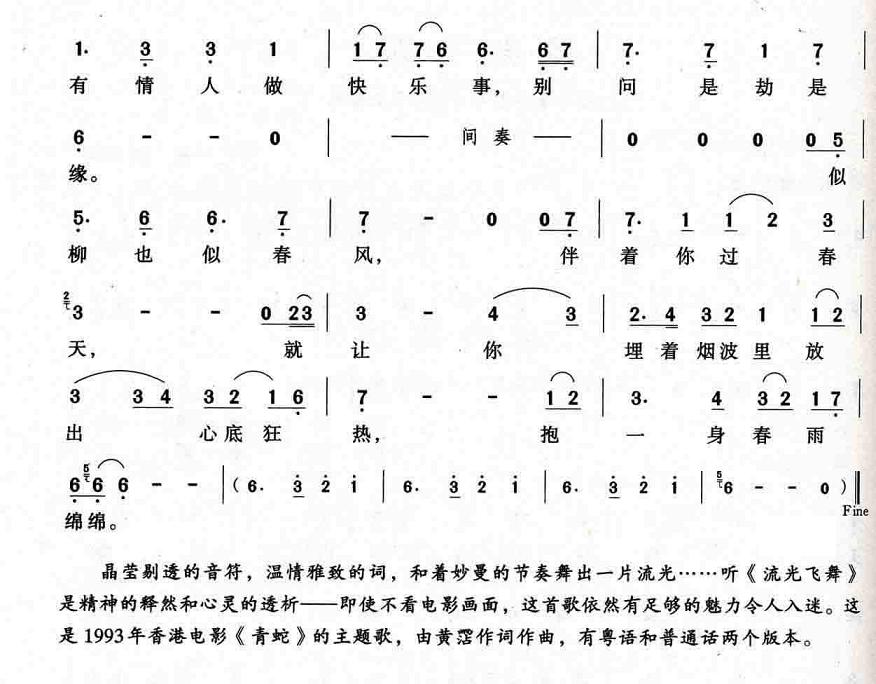 1. 3 3. 1 | 1 7 7 6 6. 6 7 | 7. 7 1 7 |
有 情 人 做 快 乐 事，别 问 是 劫 是
6 - - 0 | —— 间 奏 —— | 0 0 0 0 5 |
缘。 似
5. 6 6. 7 | 7 - 0 0 7 | 7. 1 1 2 3 |
柳 也 似 春 风， 伴 着 你 过 春
2 3 - - 0 2 3 | 3 - 4 3 | 2. 4 3 2 1 1 2 |
天， 就 让 你 埋 着 烟 波 里 放
3 3 4 3 2 1 6 | 7 - - 1 2 | 3. 4 3 2 1 7 |
出 心 底 狂 热， 抱 一 身 春 雨
6 5 6 6 - - | ( 6. 3 2 1 | 6. 3 2 1 | 6. 3 2 1 | 5 6 - - 0 ) ‖
Fine
绵 绵。
晶莹剔透的音符，温情雅致的词，和着妙曼的节奏舞出一片流光……听《流光飞舞》
是精神的释然和心灵的透析——即使不看电影画面，这首歌依然有足够的魅力令人入迷。这
是1993年香港电影《青蛇》的主题歌，由黄霑作词作曲，有粤语和普通话两个版本。